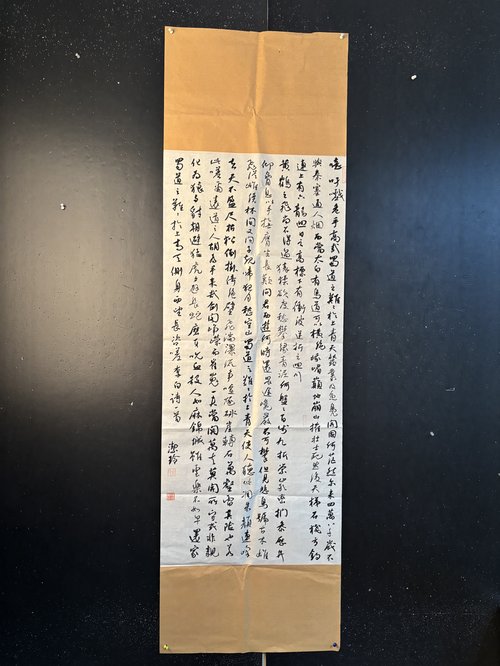 噫吁戲危乎高哉蜀道之難難於上青天蠶叢及魚鳧開國何茫然爾來四萬八千歲不
與秦塞通人煙西當太白有鳥道可以橫絕峨嵋巔地崩山摧壯士死然後天梯石棧方鉤
連上有六龍回日之高標下有衝波逆折之回川
黃鶴之飛尚不得過猿猱欲度愁攀緣青泥何盤盤百步九折縈巖巒捫參歷井
仰脅息以手撫膺坐長歎問君西遊何時還畏途巉巖不可攀但見悲鳥號古木雄
飛從雌繞林間又聞子規啼夜月愁空山蜀道之難難於上青天使人聽此凋朱顏連峰
去天不盈尺枯松倒掛倚絕壁飛湍瀑流爭喧豗砯崖轉石萬壑雷其險也若
此嗟爾遠道之人胡爲乎來哉劍閣崢嶸而崔嵬一夫當關萬夫莫開所守或非親
化爲狼與豺朝避猛虎夕避長蛇磨牙吮血殺人如麻錦城雖云樂不如早還家
蜀道之難難於上青天側身西望長咨嗟李白詩一首
潔玲